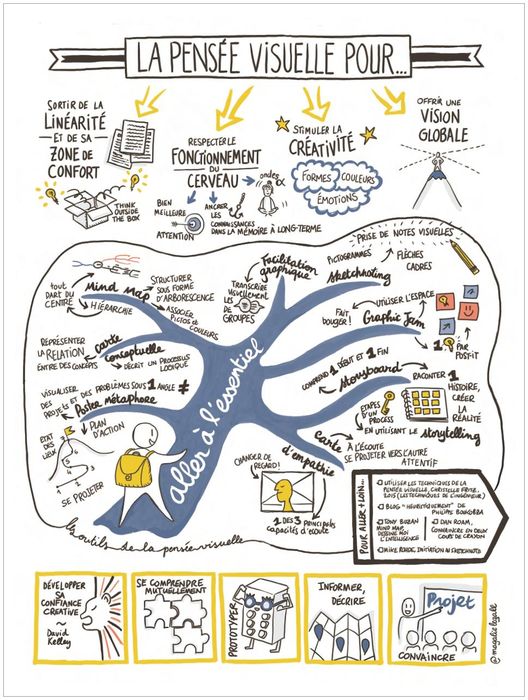 LA PENSÉE VISUELLE POUR...
SORTIR DE LA
LINÉARITÉ
ET DE SA
ZONE DE
CONFORT
THINK
OUTSIDE
THE BOX
RESPECTER LE
FONCTIONNEMENT
DU
CERVEAU
ondes α
BIEN
MEILLEURE
ATTENTION
ANCRER
LES
CONNAISSANCES
DANS LA MÉMOIRE À LONG-TERME
STIMULER LA
CRÉATIVITÉ
FORMES
COULEURS
ÉMOTIONS
OFFRIR UNE
VISION
GLOBALE
PRISE DE NOTES VISUELLES
PICTOGRAMMES
FLÈCHES
CADRES
sketchnoting
Facilitation
graphique
TRANSCRIRE
VISUELLEMENT
LES
DE
GROUPES
Mind Map
tout
PART DU
CENTRE
HIÉRARCHIE
STRUCTURER
SOUS FORME
D'ARBORESCENCE
ASSOCIER
PICTOS ET
COULEURS
UTILISER L'ESPACE
FAIT
BOUGER!
Graphic Jam
1
PAR
POST-IT
REPRÉSENTER
LA RELATION
ENTRE DES CONCEPTS
Carte
conceptuelle
DÉCRIT UN PROCESSUS
LOGIQUE
COMPREND 1 DÉBUT ET 1 FIN
Storyboard
RACONTER 1
HISTOIRE,
CRÉER
LA
RÉALITÉ
ETAPES
D'UN
PROCESS
EN UTILISANT LE storytelling
VISUALISER
DES PROJETS ET DES PROBLÈMES SOUS 1 ANGLE ≠
Poster métaphore
PLAN
D'ACTION
ETAT
DES
LIEUX
SE PROJETER
aller à l'essentiel
Carte
d'empathie
À L'ÉCOUTE
SE PROJETER VERS L'AUTRE
ATTENTIF
CHANGER DE
REGARD!
1 DES 3 PRINCIPALES
CAPACITÉS D'ÉCOUTE
les outils de la pensée visuelle
POUR ALLER + LOIN...
UTILISER LES TECHNIQUES DE LA
PENSÉE VISUELLE,
2015 (LES TECHNIQUES DE L'INGÉNIEUR)
BLOG "HEURISTIQUEMENT" DE
PHILIPPE BOUKOBZA
TONY BUZAN
MIND MAP,
DESSINE MOI
L'INTELLIGENCE
DAN ROAM,
CONVAINCRE EN DEUX
COUPS DE CRAYON
MIKE ROHDE, INITIATION AU SKETCHNOTE
DÉVELOPPER
SA
CONFIANCE
CREATIVE
~
David
Kelley
SE COMPRENDRE
MUTUELLEMENT
PROTOTYPER
INFORMER,
DÉCRIRE
Projet
CONVAINCRE
@magalie legall